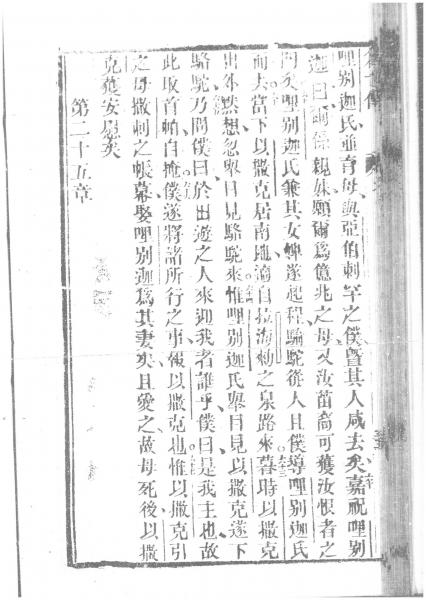 哩別迦氏並育母與亞伯剌罕之僕曁其人咸去矣嘉祝哩別
迦曰爾係親妹願爾爲億兆之母又汝苗裔可獲汝恨者之
門矣哩別迦氏兼其女婢遂起程騎駝從人且僕導哩別迦氏
而去當下以撒克居南地適自拉海勑之泉路來暮時以撒克
出外黙想忽舉目見駱駝來惟哩別迦氏舉目見以撒克遂下
駱駝乃問僕曰於出遊之人來迎我者誰乎僕曰是我主也故
此取首帕自掩僕遂將諸所行之事報以撒克也惟以撒克引
之母撒剌之帳幕娶哩別迦爲其妻矣且愛之故母死後以撒
克獲安慰矣
第二十五章